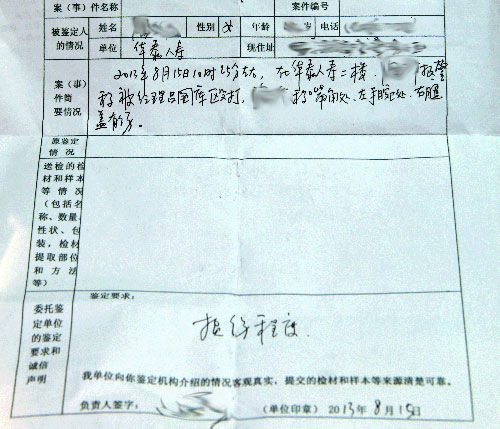 案（事）件名称 案件编号
被鉴定人 姓名 性别 女 年龄 岁 电话
的情况 单位 华泰人寿 现住址
2013年8月15日10时25分左右，在华泰人寿二楼，报警
案（事） 称被经理殴打，称嘴角处、左手腕处、右膝
件简 盖有伤。
要情况
原鉴定
情况
送检的检
材和样本
等情况
（包括名
称、数量、
性状、包
装，检材
提取部位
和方法
等）
鉴定要求：
委托鉴
定单位 损伤程度.
的鉴定
要求和
诚信 我单位向你鉴定机构介绍的情况客观真实，提交的检材和样本等来源清楚可靠。
声明 负责人签字： （单位印章）2013年8月15日